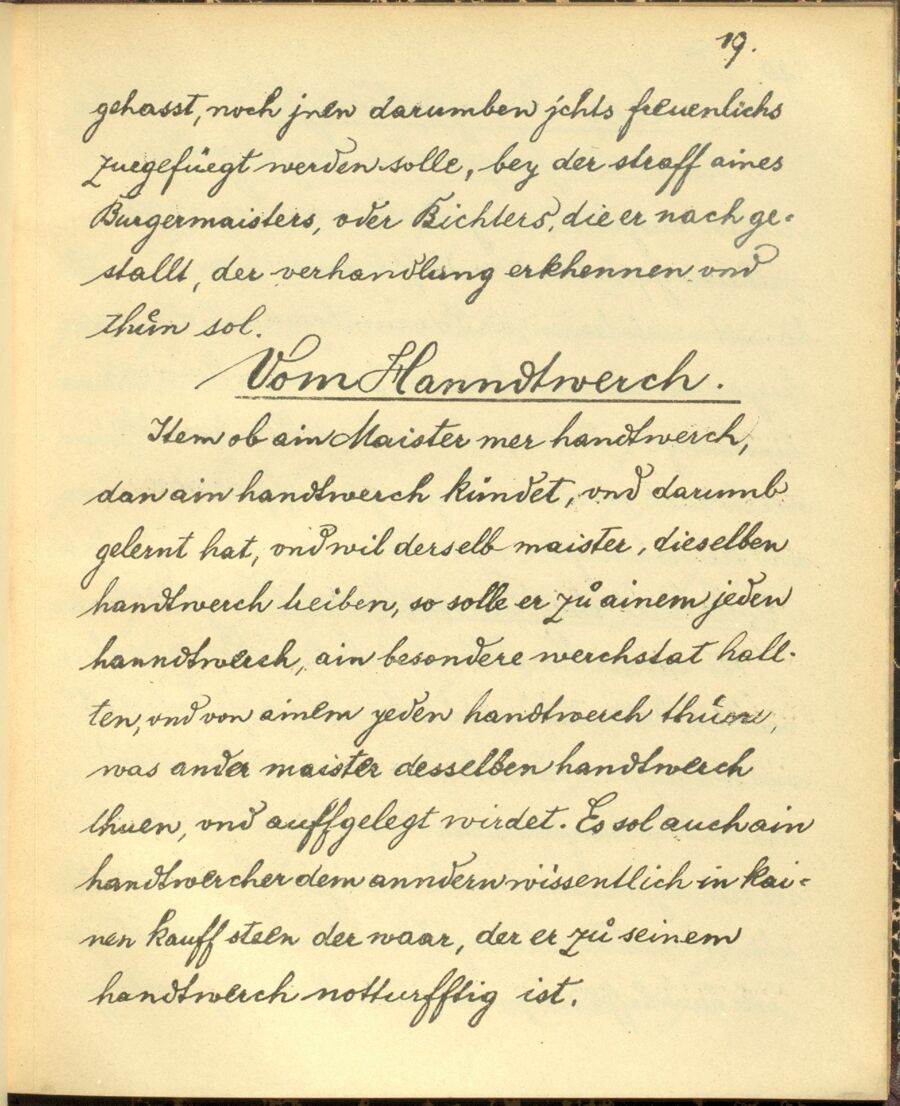 19.
gehasst, noch jnen darumben jchts freuenlichs
zuegefüegt werden solle, bey der straff aines
Burgermaisters, oder Richters, die er nach ge-
stallt, der verhandlung erkhennen vnd
thůn sol.
Vom Hanndtwerch.
Item ob ain Maister mer handtwerch,
dan ain handtwerch kündet, vnd darumb
gelernt hat, vnd wil derselb maister, dieselben
handtwerch treiben, so solle er zů ainem jeden
hanndtwerch, ain besondere werchstat hall-
ten, vnd von ainem yeden handtwerch thůen,
was ander maister desselben handtwerch
thuen, vnd auffgelegt wirdet. Es sol auch ain
handtwercher dem anndern wissentlich in kai-
nen kauff steen der waar, der er zů seinem
handtwerch notturfftig ist.